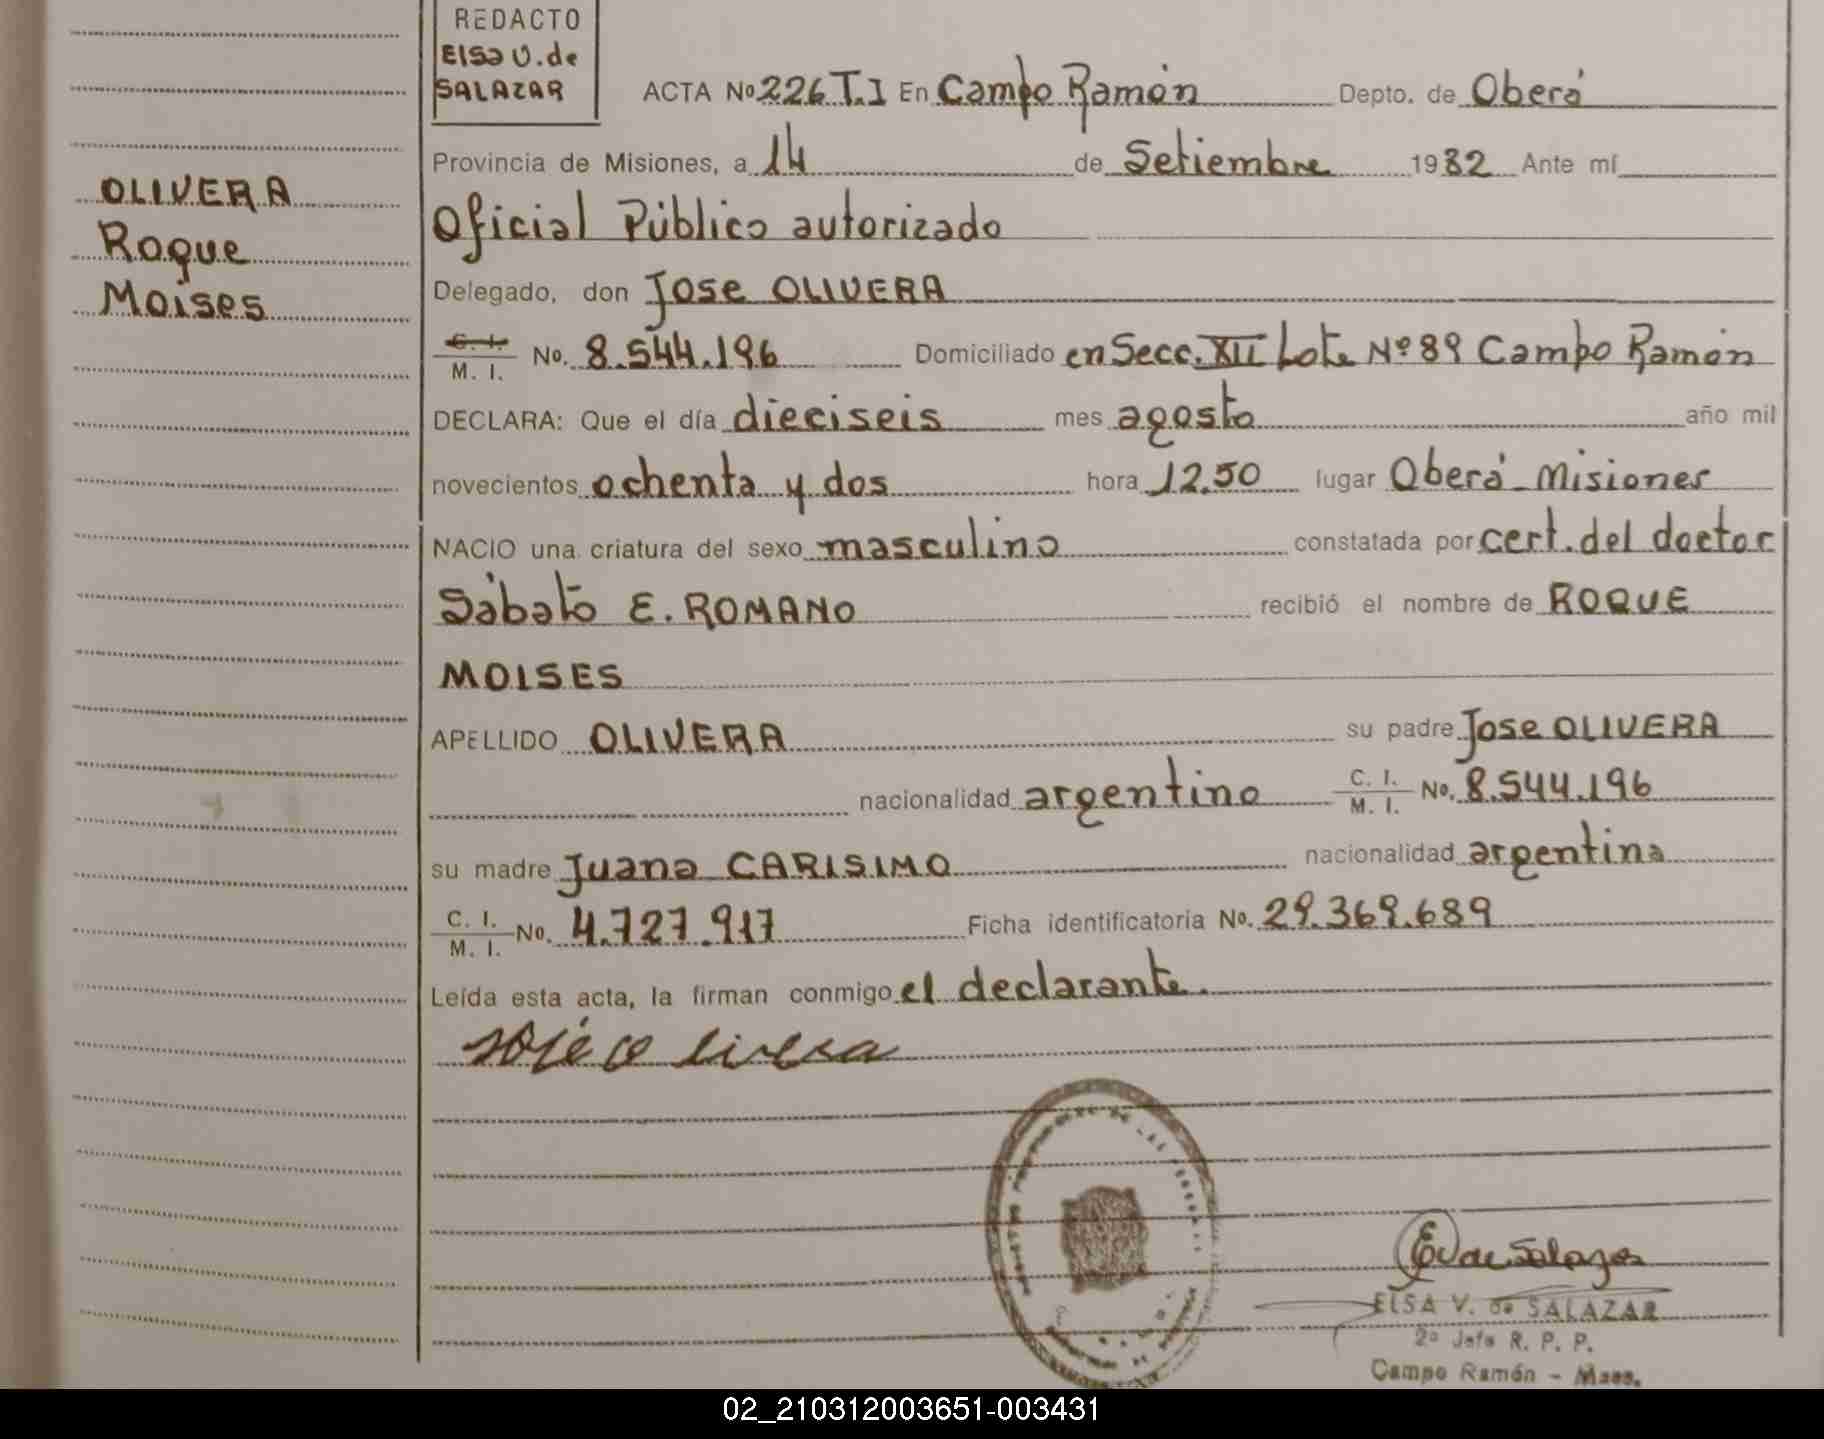 REDACTO
Elsa V. de
SALAZAR
ACTA No 226 T.I En Campo Ramón Depto. de Oberá
Provincia de Misiones, a 14 de Setiembre 1982 Ante mí
OLIVERA
Roque
Moises
Oficial Público autorizado
Delegado, don Jose OLIVERA
C. I.
M. I. No. 8.544.196 Domiciliado en Secc. XII Lote Nº 89 Campo Ramón
DECLARA: Que el día dieciseis mes agosto año mil
novecientos ochenta y dos hora 12.50 lugar Oberá - Misiones
NACIO una criatura del sexo masculino constatada por cert. del doctor
Sábato E. ROMANO recibió el nombre de ROQUE
MOISES
APELLIDO OLIVERA su padre Jose OLIVERA
nacionalidad argentino C. I. M. I. No. 8.544.196
su madre Juana CARISIMO nacionalidad argentina
C. I. M. I. No. 4.727.917 Ficha identificatoria No. 29.369.689
Leída esta acta, la firman conmigo el declarante.
E V de Salazar
ELSA V. de SALAZAR
2º Jefa R. P. P.
Campo Ramón - Mnes.
02_210312003651-003431